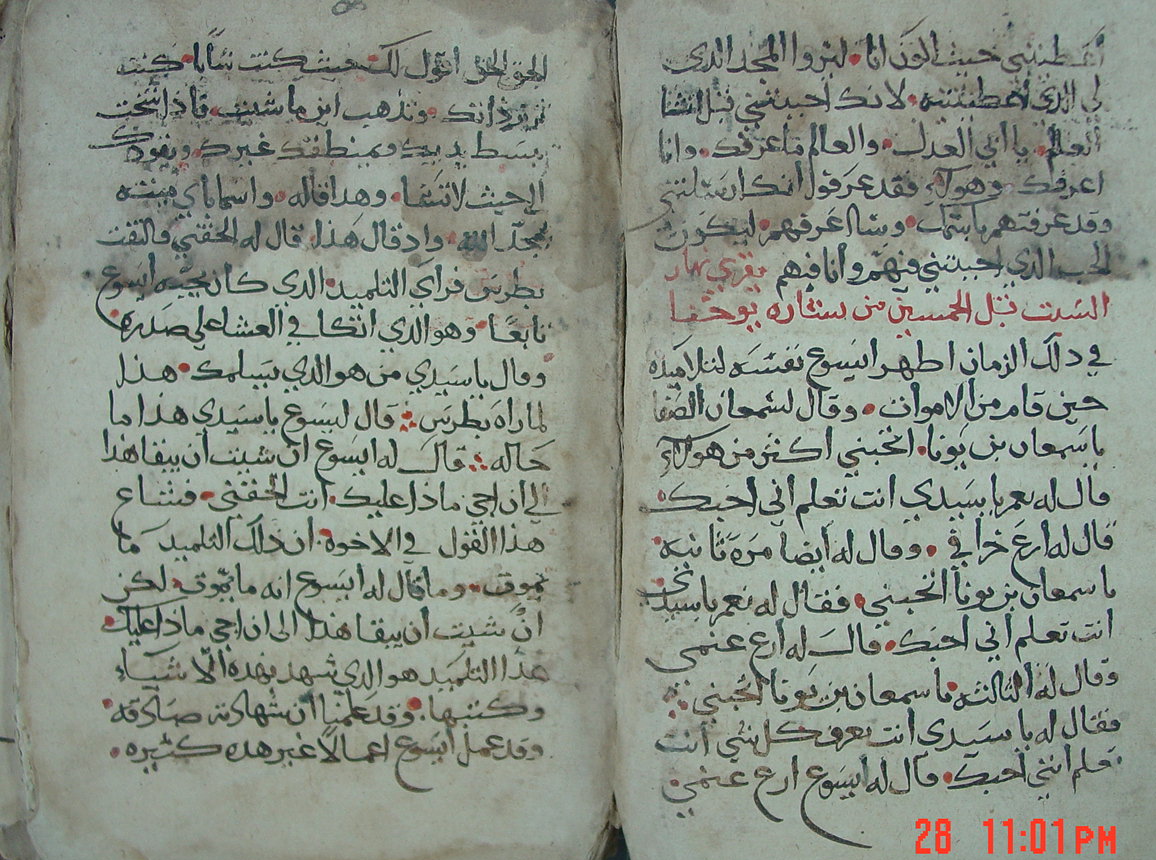 اعطيتني حيث اكون انا • لينروا المجد الذي
لي الذي اعطيتنيه • لانك احببتني قبل انشا
العالم • يا ابي العدل • والعالم ما عرفك • وانا
اعرفك وهولاء فقد عرفوا انك ارسلتني
وقد عرفتهم باسمك • وسااعرفهم • ليكون
الحب الذي احببتني فيهم وانا فيهم يقرى نهار
السبت قبل الخمسين من بشاره يوحنا
في دلك الزمان اظهر ايسوع نفسه لتلاميده
حين قام من الاموات • وقال لسمعان الصفا
يا سمعان بن يونا • اتحبني اكتر من هولاء
قال له نعم يا سيدي انت تعلم اني احبك •
قال له ارع خرافي • وقال له ايضا مرة ثانيه •
يا سمعان بن يونا اتحبني • فقال له نعم يا سيدي
انت تعلم اني احبك • قال له ارع غنمي
وقال له الثالثه • يا سمعان بن يونا اتحبني
فقال له يا سيدي انت تعرف كل شي انت
تعلم انني احبك • قال له ايسوع ارع غنمي •
الحق الحق اقول لك حيث كنت شابا • كنت
تزنر داتك • وتدهب اين ما شيت • فاذا شخت
بسط يديك ومنطقك غيرك • ويقودك
الى حيث لا تشا • وهدا قاله • واسما باي ميته
يمجد الله • واد قال هذا • قال له الحقني فالتفت
بطرس فراى التلميد • الذي كان يحبه ايسوع
تابعا • وهو الذي اتكا في العشا على صدره •
وقال يا سيدي من هو الذي يسلمك • هذا
لما راه بطرس • قال ليسوع يا سيدي هذا ما
حاله • قال له ايسوع ان شيت ان يبقا هذا
الى ان اجي ماذا عليك • انت الحقني • فشاع
هذا القول في الاخوة • ان دلك التلميد ما
يموت • وما قال له ايسوع انه ما يموت • لكن
ان شيت ان يبقا هذا الى ان اجي ماذا عليك •
هذا التلميد هو الذي شهد بهده الاشياء
وكتبها • وقد علمنا ان شهادته صادقه •
وقد عمل ايسوع اعمالا غير هده كثيره •
28 11:01 PM